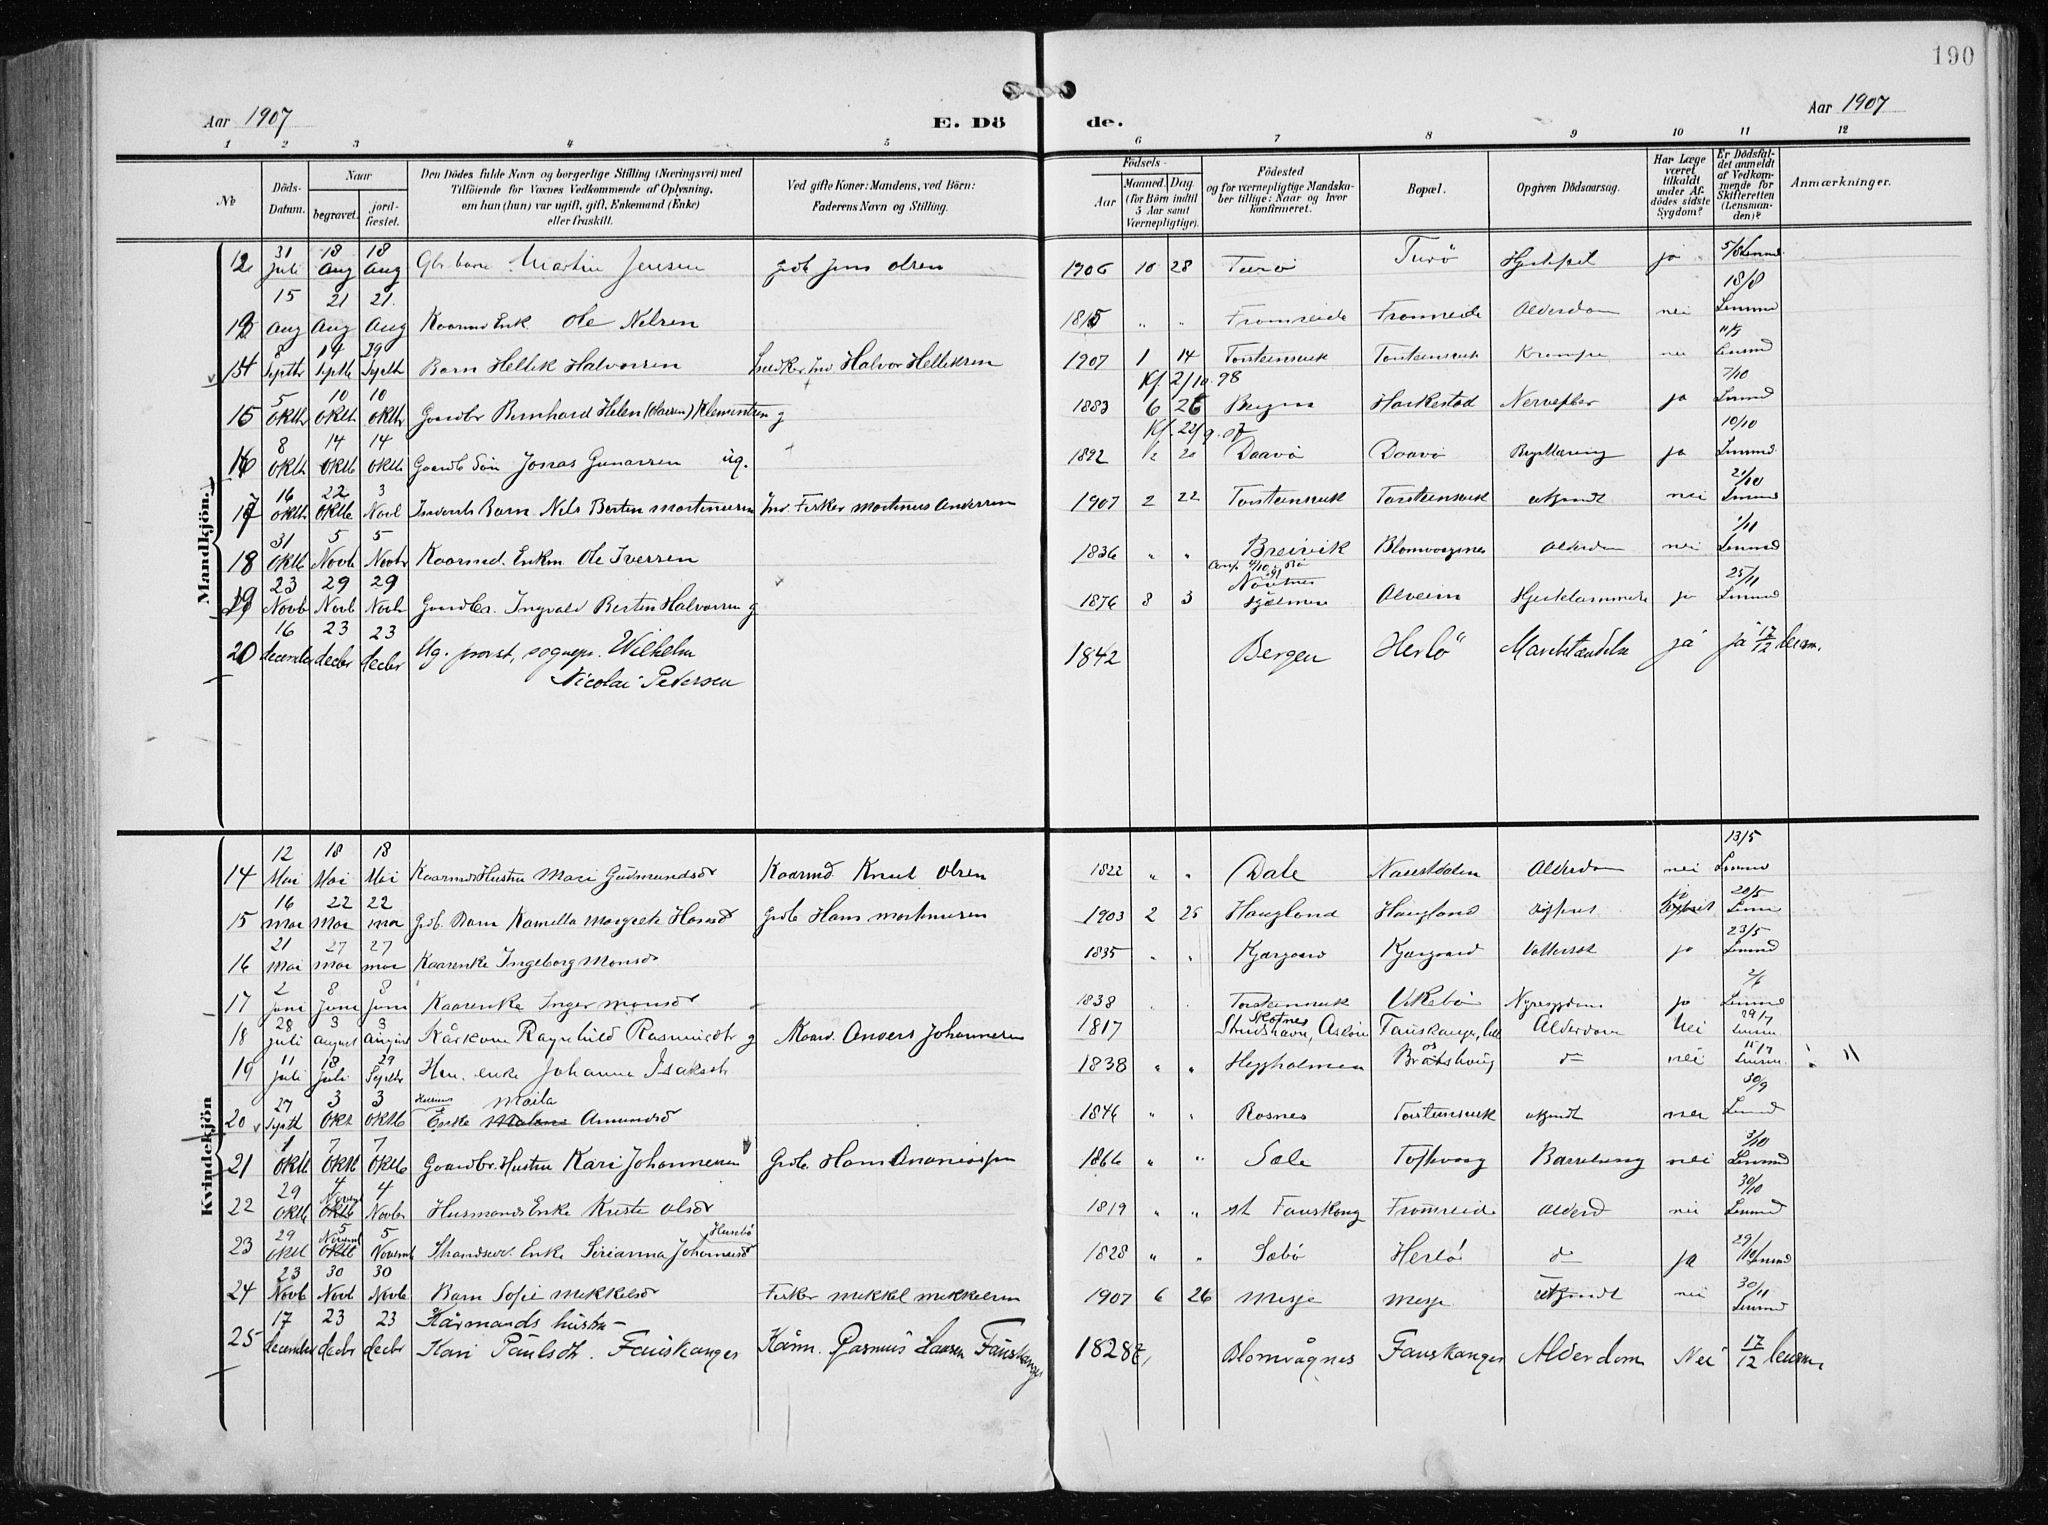 190
Aar 1907
E. Dö de.
Aar 1907
1 2 3 4 5 6 7 8 9 10 11 12
No
Döds-Datum.
Naar
begravet.
jord-fæstet.
Den Dödes fulde Navn og borgerlige Stilling (Næringsvei) med
Tilföiende for Voxnes Vedkommende af Oplysning,
om han (hun) var ugift, gift, Enkemand (Enke)
eller fraskilt.
Ved gifte Koner: Mandens, ved Börn:
Faderens Navn og Stilling.
Födsels-
Aar
Maaned.
Dag
(for Börn indtil
5 Aar samt
Værnepligtige).
Födested
og for værnepligtige Mandska-
ber tillige: Naar og hvor
konfirmeret.
Bopæl.
Opgiven Dödsaarsag.
Har Læge
været
tilkaldt
under Af-
dödes sidste
Sygdom?
Er Dödsfal-
det anmeldt
af Vedkom-
mende for
Skifteretten
(Lensman-
den)?
Anmærkninger.
Mandkjön.
12 31 Juli 18 Aug 18 Aug Gbr barn Martin Jensen grdb Jens Olsen 1906 10 28 Turö Turö ja 5/8 Lensmd
13 15 Aug 21 Aug 21. Aug Kaarmd Enk Ole Nelsen 1815 " " Fromreide Fromreide Alderdom nei 18/8 Lensmd
14 8 Septbr 14 Septb 29 Septb Barn Hellik Halvorsen Halvor Helliksen 1907 1 14 Torsteinsvik Torsteinsvik Krampe nei Lensmd
Kf. 2/10. 98
15 5 Oktbr 10 Oktb 10 Oktb Gaardbr Bernhard Helen (Olausen) Klementsen g 1883 6 26 Bergen Haukestad Nervefeber ja 7/10 Lensmd
Kf. 22/9. 07
16 8 Oktb 14 Oktb 14 Oktb Gaardb Sön Jonas Gunarsen ug. 1892 20 Daavö Daavö ja 10/10 Lensmd
17 16 Oktbr 22 Oktb 3 Novb Inderst Barn Nels Bertin Martinusen Ind. Fisker Martinus Andersen 1907 2 22 Torsteinsvik Torsteinsvik ukjendt nei 21/10 Lensmd
18 31 Oktb 5 Novb 5 Novbr Kaarmd. Enkm Ole Iversen 1836 " " Breivik Blomvaagnes Alderdom nei 1/11 Lensmd
19 23 Novb 29 Novb 29 Novb Gaardbr. Ingvald Bertin Halvorsen g 1876 8 3 Hjelmen Alveim ja 25/11 Lensmd
20 16 december 23 decbr 23 decbr Ug. provst, sognepr. Wilhelm
Nicolai Petersen 1842 Bergen Herlö ja ja 17/12 lensm.
Kvindekjön
14 12 Mai 18 Mai 18 Mai Kaarmds Hustru Mari Gudmundsdr Kaarmd Knut Olsen 1822 " " Dale Navstdalen Alderdom nei 13/5 Lensmd
15 16 Mai 22 Mai 22 Mai Grdb. Barn Kamella Margrete Hansd Grdb Hans Martinusen 1903 2 25 Haugland Haugland 20/5 Lensm
16 21 Mai 27 Mai 27 Mai Kaarenke Ingeborg Monsd 1835 " " Kjærgaard Kjærgaard Vattersot ja 23/5 Lensmd
17 2 Juni 8 Juni 8 Juni Kaarenke Inger Monsdr 1838 Torsteinsvik Vikebö Nyresygdom ja 2/6 Lensmd
18 28 juli 3 august 3 august Kårkone Ragnhild Rasmusdtr g Kaard. Anders Johannesen 1817 Skotnes
Strudshavn, Asköen Fauskanger, Alderdom Nei 29/7 Lensm
19 11 juli 18 juli 29 Septbr Hm. enke Johanne Isaksdtr 1838 " " Heggholmen Bratshaug do nei 15/7 Lensm. "
20 27 Septb 3 Okt 3 Oktb Enke Maila Amundsd 1846 " " Rosnes Torsteinsvik ukjendt nei 30/9 Lensmd
21 1 Oktb 7 Oktb 7 Oktb Gaardbr. Hustru Kari Johannesen Grdb. Hans Ananiassen 1866 " " Sæle Toftvaag nei 3/10 Lensmd
22 29 Oktb 4 Novemb 4 Novbr Husmands Enke Kriste Olsdr 1819 " " st Fauskang Fromreide Alderd nei 30/10 Lensmd
23 29 Oktb 5 Novemb 5 Novemb Strandsid. Enke Serianna Johannesd 1828 " " Sæbö Herlö do ja 29/10 Lensmd
24 23 Novb 30 Novb 30 Novb Barn Sofie Mikkelsdr Fisker Mikkel Mikkelsen 1907 6 26 Misje Misje ukjendt nei 30/11 Lensmd
25 17 december 23 decbr 23 decbr Kårmands hustru
Kari Paulsdtr. Fauskanger Kårm. Rasmus Hansen Fauskanger 1828 Blomvågnes Fauskanger Alderdom Nei 17/12 lensm.